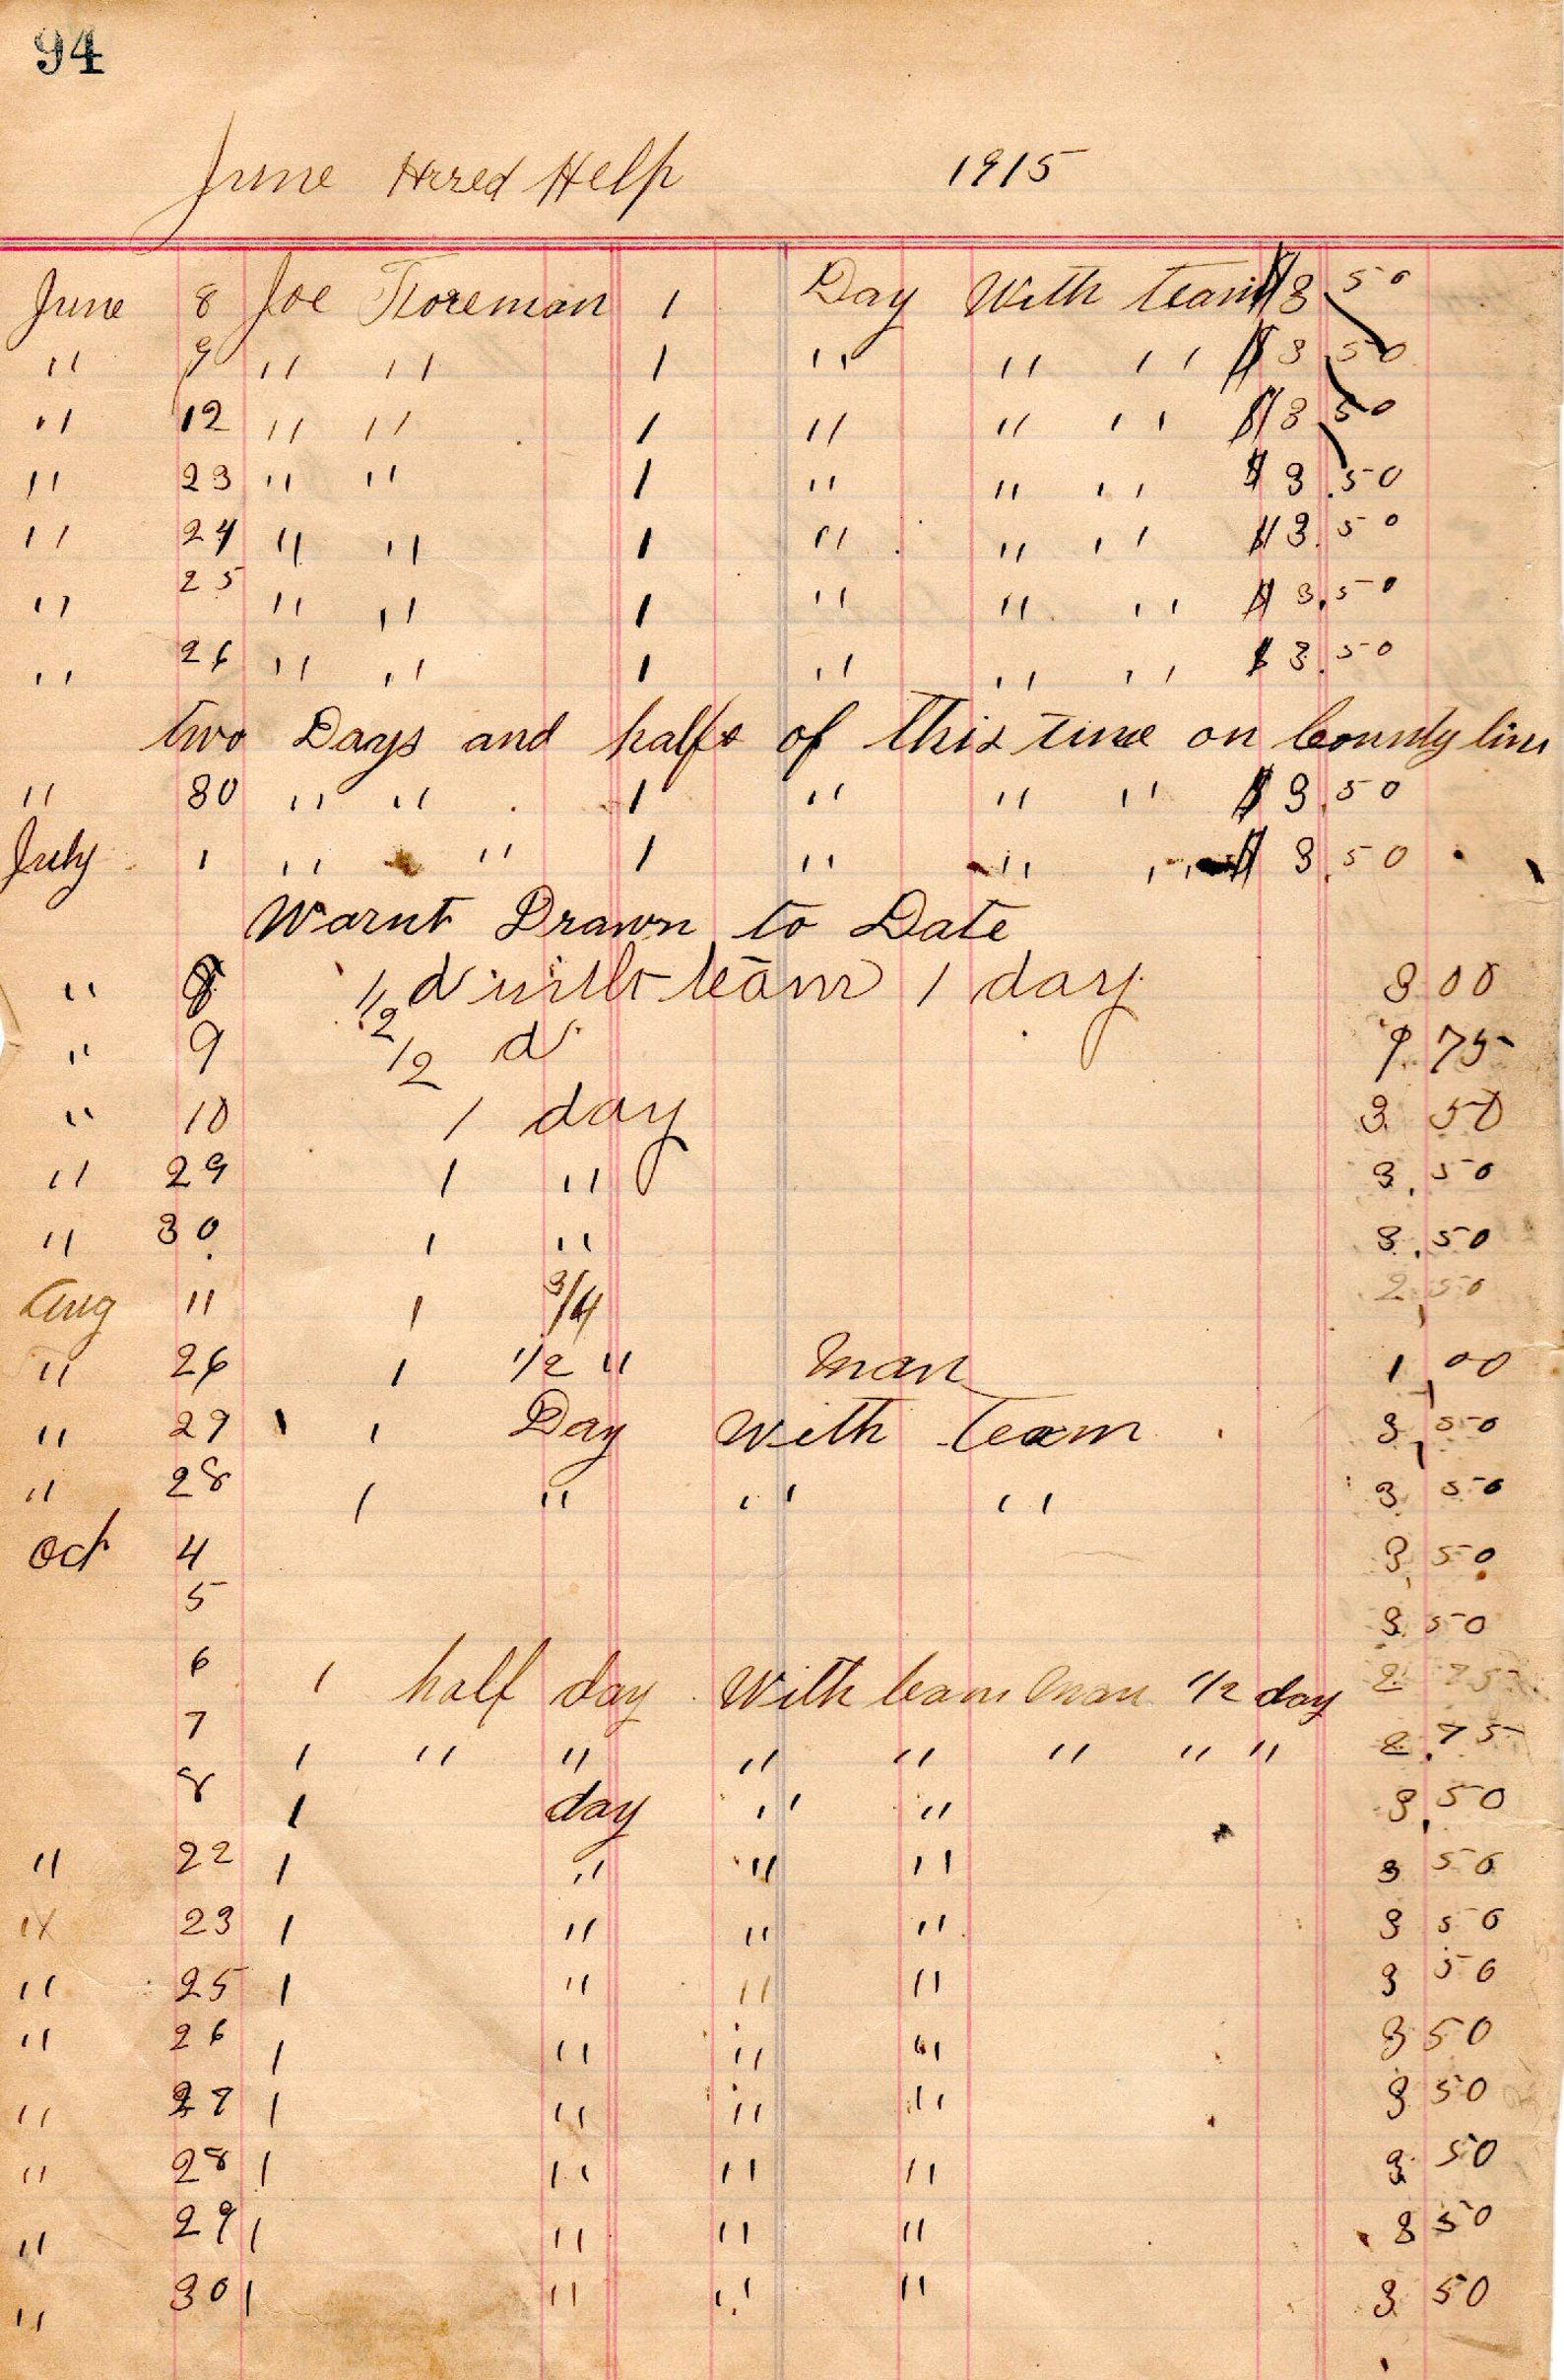 94
June Hired Help 1915
June 8 Joe Floreman 1 Day With team $3 50
" 9 " " 1 " " " $3 50
" 12 " " 1 " " " $3 50
" 23 " " 1 " " " $3.50
" 24 " " 1 " " " $3.50
" 25 " " 1 " " " $3.50
" 26 " " 1 " " " $3.50
two Days and half of this time on County line
" 30 " " 1 " " " $3.50
July 1 " " 1 " " " $3.50
Warnt Drawn to Date
" 8 1/2 d with team 1 day 3 00
" 9 1/2 d 1.75
" 10 1 day 3.50
" 29 1 " 3.50
" 30 1 " 3.50
Aug 11 1 3/4 2.50
" 26 1 1/2 " man 1.00
" 27 1 Day With Team 3.50
" 28 1 " " " 3.50
Oct 4 3.50
5 3.50
6 1 half day With team man 1/2 day 2.75
7 1 " " " " " " " 2.75
8 1 day " " 3.50
" 22 1 " " " 3 50
" 23 1 " " " 3 50
" 25 1 " " " 3 50
" 26 1 " " " 3 50
" 27 1 " " " 3 50
" 28 1 " " " 3 50
" 29 1 " " " 3 50
" 30 1 " " " 3 50